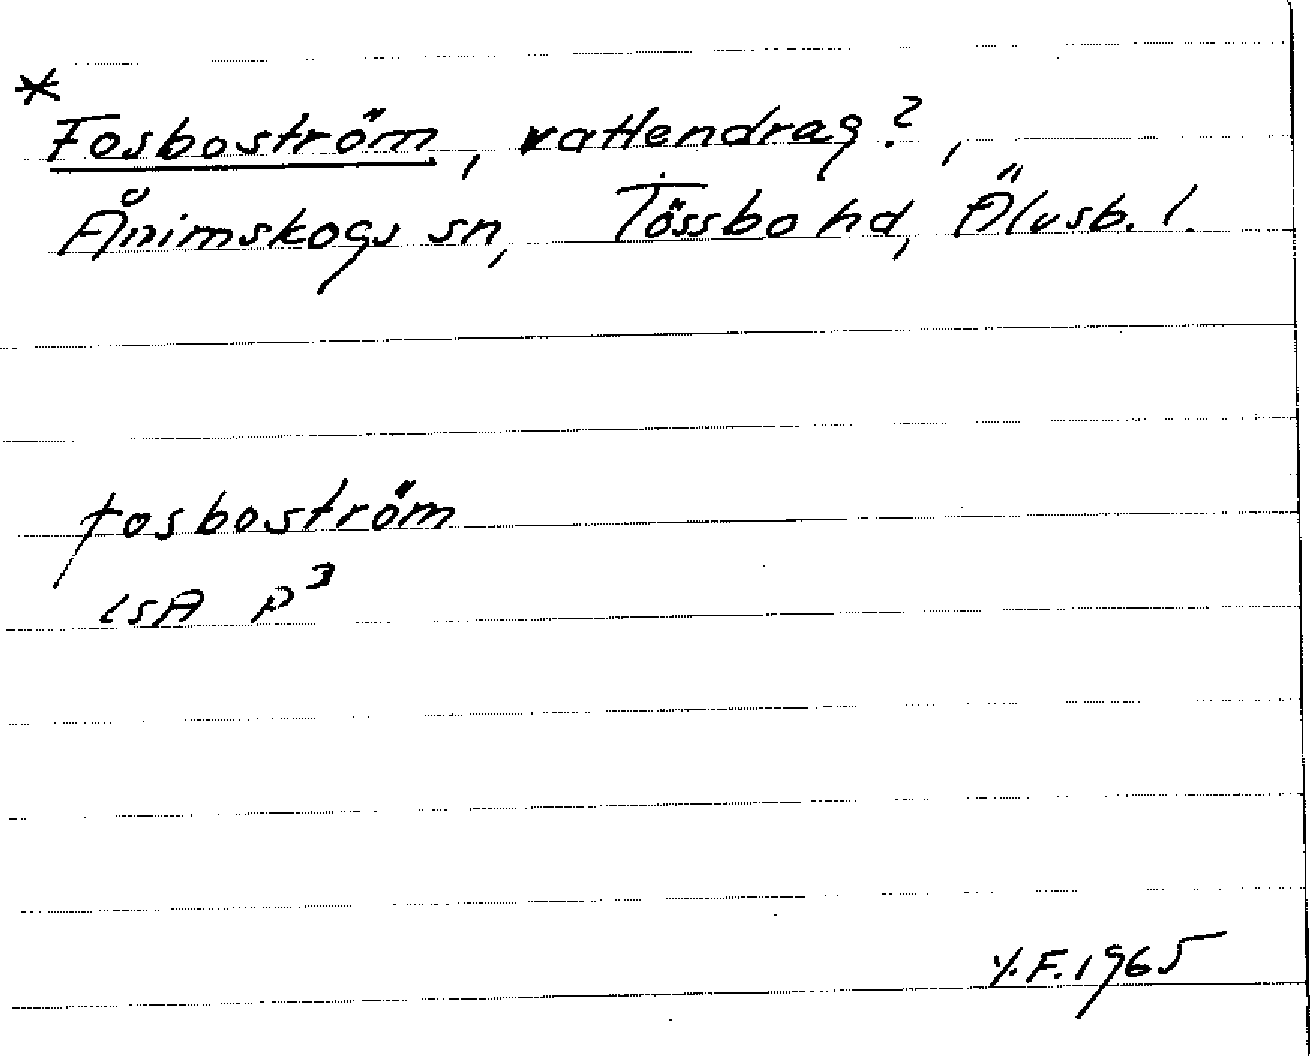 *
Fosboström, vattendrag?,
Ånimskogs sn, Tössbo hd, Älvsb. l.
fosboström
LSA P³
Y.F. 1965